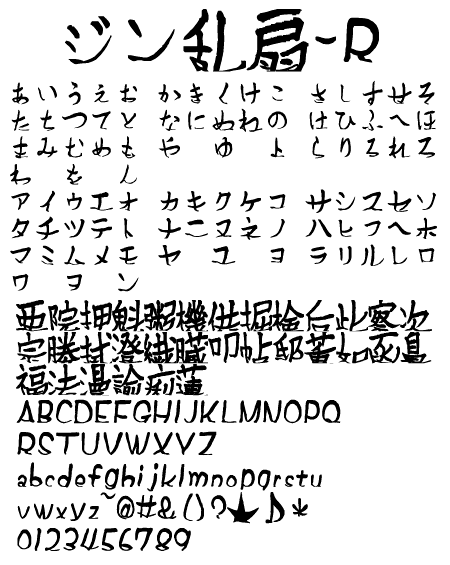 ジン乱扇-R
あいうえお かきくけこ さしすせそ
たちつてと なにぬねの はひふへほ
まみむめも や ゆ よ らりるれろ
わ を ん
アイウエオ カキクケコ サシスセソ
タチツテト ナニヌネノ ハヒフヘホ
マミムメモ ヤ ユ ヨ ラリルレロ
ワ ヲ ン
亜院押魁粥機供掘検后此察次
宗勝拭澄繊臓叩帖邸董如
福法漫諭痢蓮
ABCDEFGHIJKLMNOPQ
RSTUVWXYZ
abcdefghijklmnopqrstu
vwxyz~@#&()?★♪*
0123456789